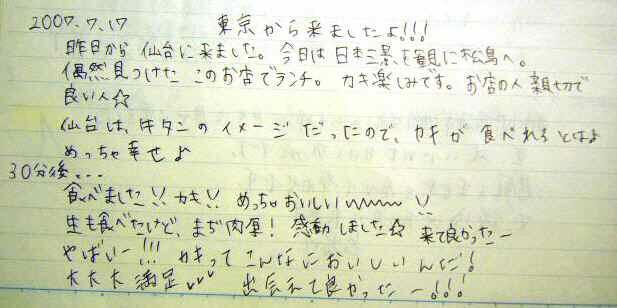 2007.7.17 東京から来ましたよ!!!
昨日から 仙台に来ました。今日は日本三景を観に松島へ。
偶然見つけた このお店でランチ。カキ楽しみです。お店の人 親切で
良い人☆
仙台は、牛タンのイメージだったので、カキが食べれるとはよ
めっちゃ幸せ♪
30分後...
食べました!! カキ!! めっちゃおいしい〜〜〜!!
生も食べたけど、まぢ肉厚! 感動しました☆ 来て良かったー
やばいー!!! カキってこんなにおいしいんだ!
大大大満足✓✓✓ 出会えて良かったー!!!